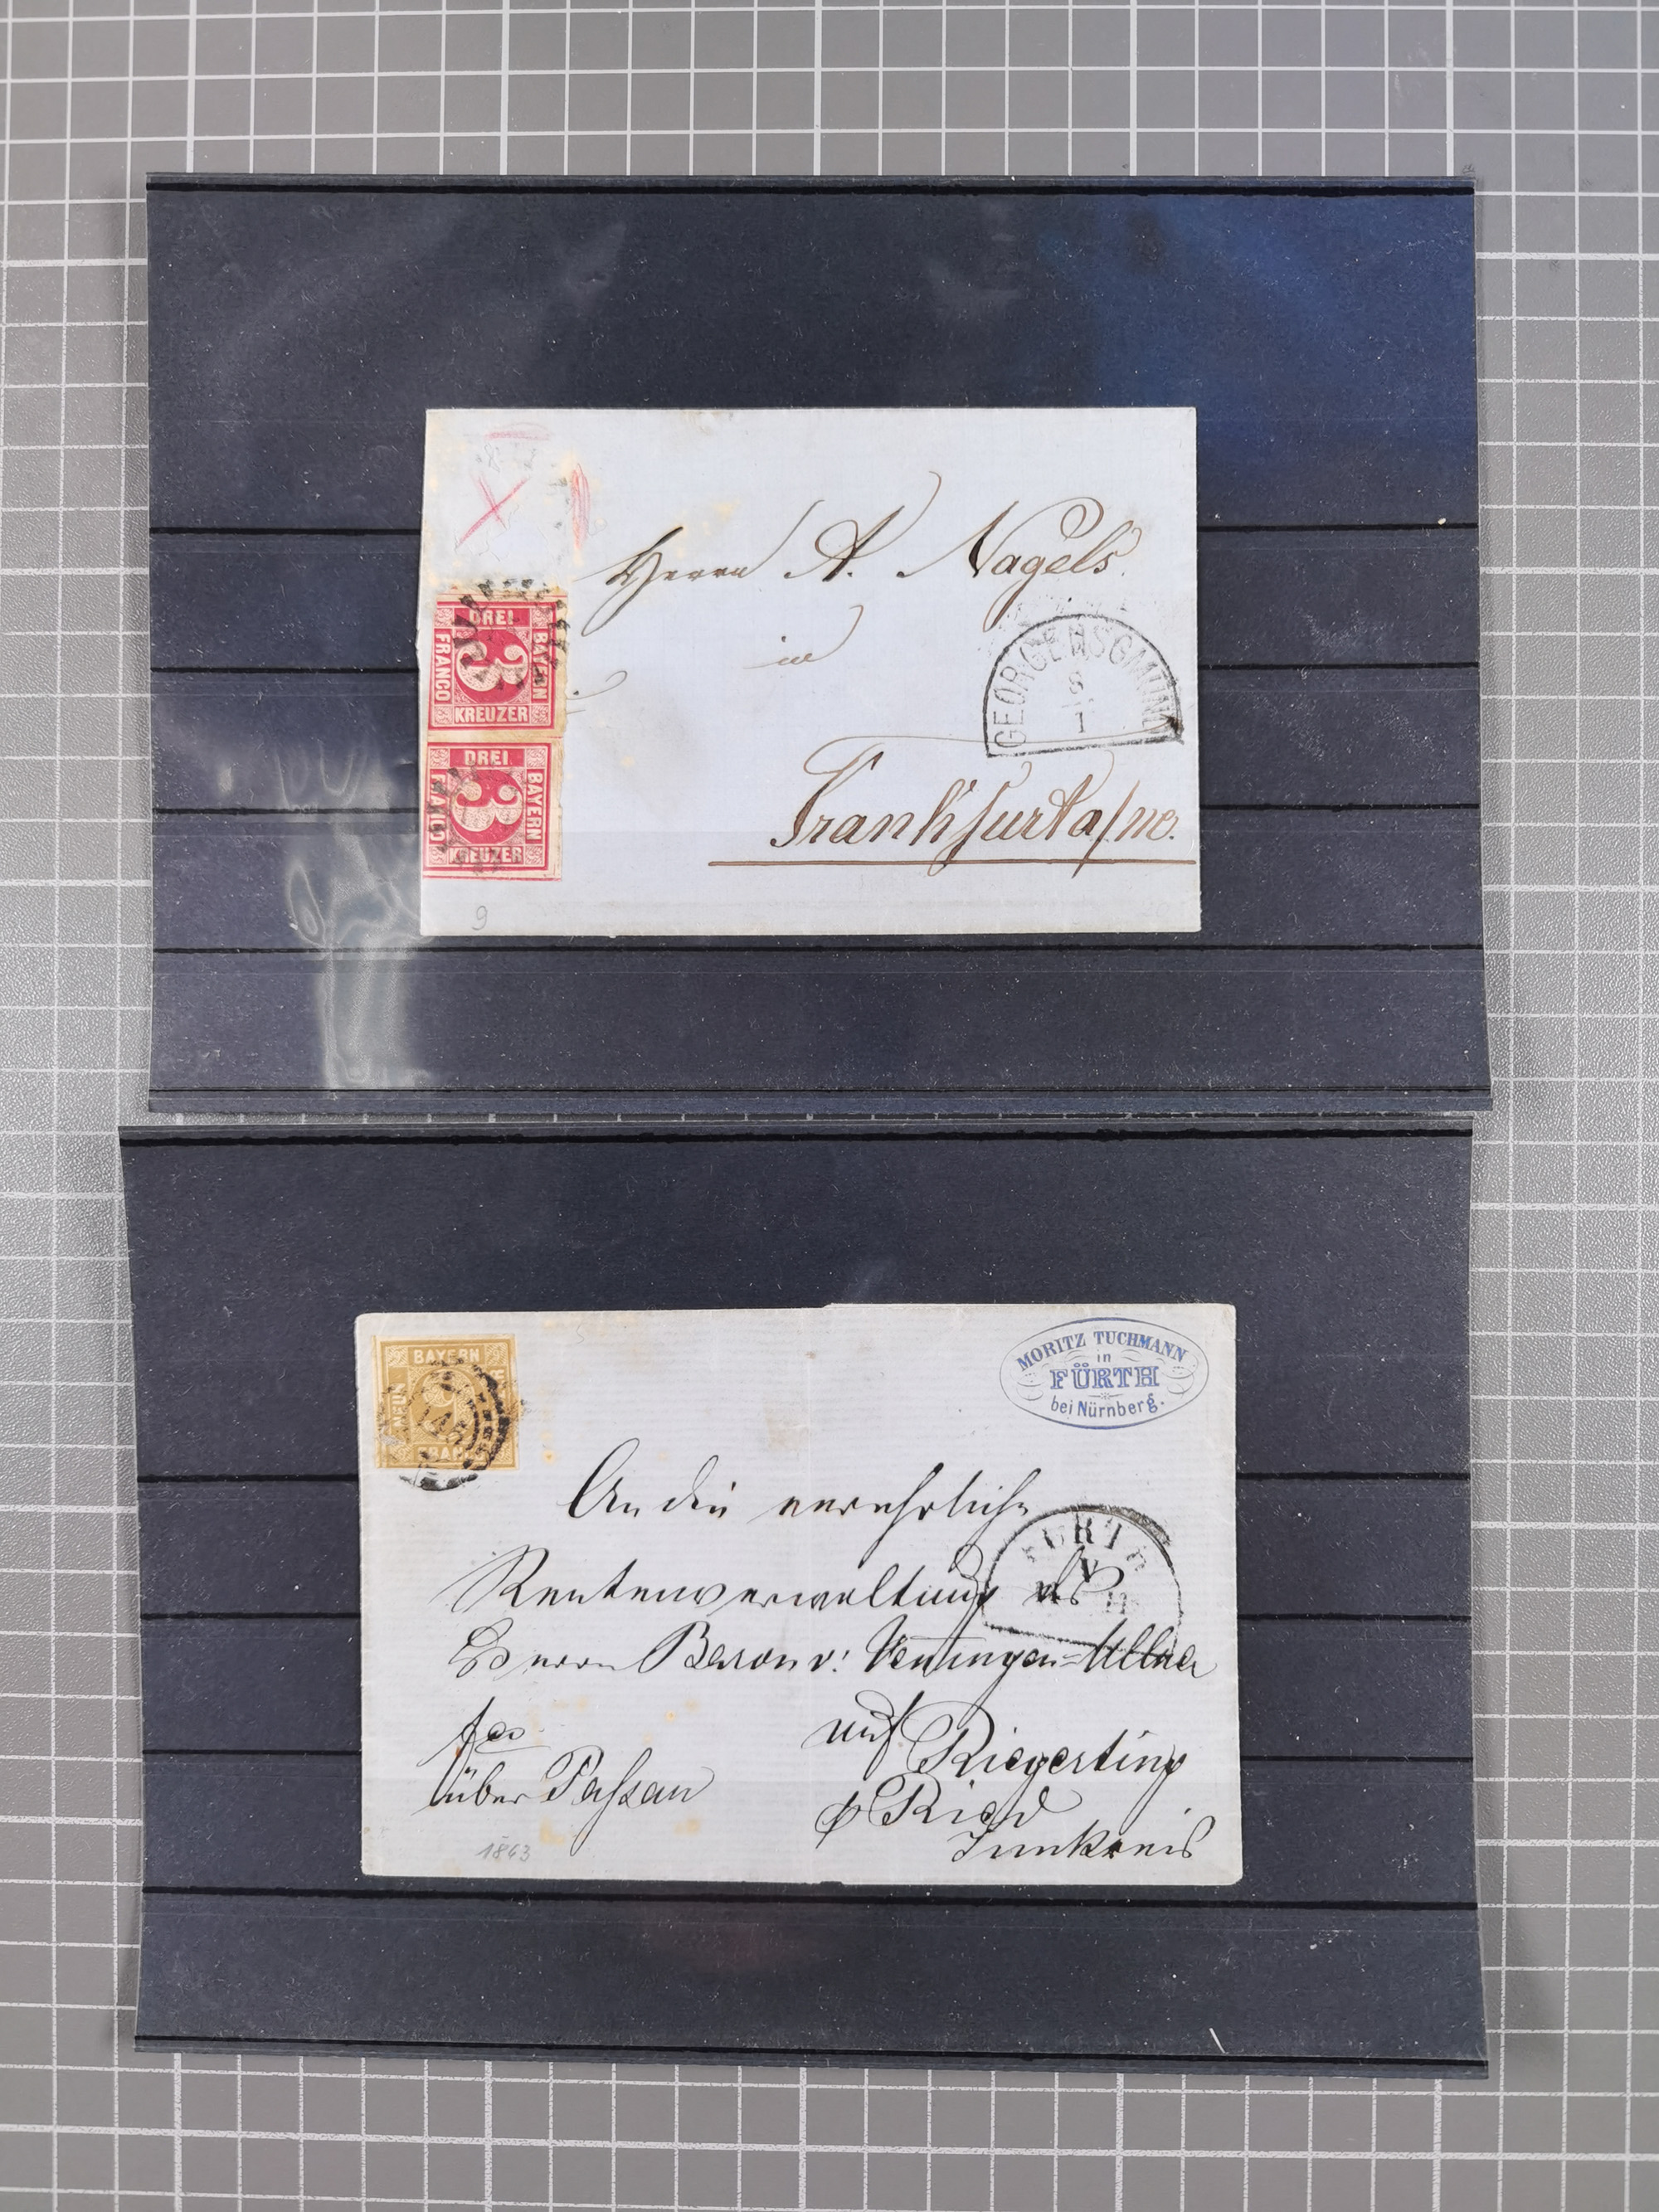 Herrn A. Nagels
in
GEORGENSGMÜND
8
1
Frankfurt a/m.
DREI
BAYERN
FRANCO
3
KREUZER
DREI
BAYERN
FRANCO
3
KREUZER
9
BAYERN
NEUN
MORITZ TUCHMANN
in
FÜRTH
bei Nürnberg.
FÜRTH
An die verehrliche
Rentenverwaltung des
Herrn Baron v: Venningen=Ullner
auf Riegerting
p Ried
Innkreis
fco
über Passau
1863